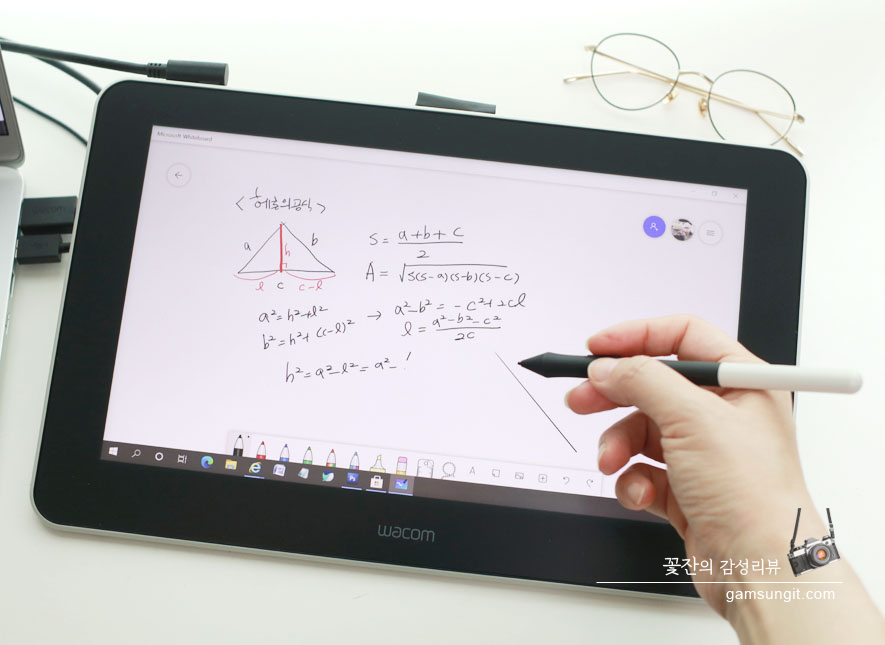 Microsoft Whiteboard
<헤론의공식>
a
h
b
l
c
c-l
S = (a+b+c)/2
A = √S(S-a)(S-b)(S-c)
a²=h²+l²
b²=h²+(c-l)²
→ a²-b² = -c²+2cl
l = (a²-b²-c²)/2c
h²=a²-l²=a²-
wacom
wacom
꽃잔의 감성리뷰
gamsungit.com